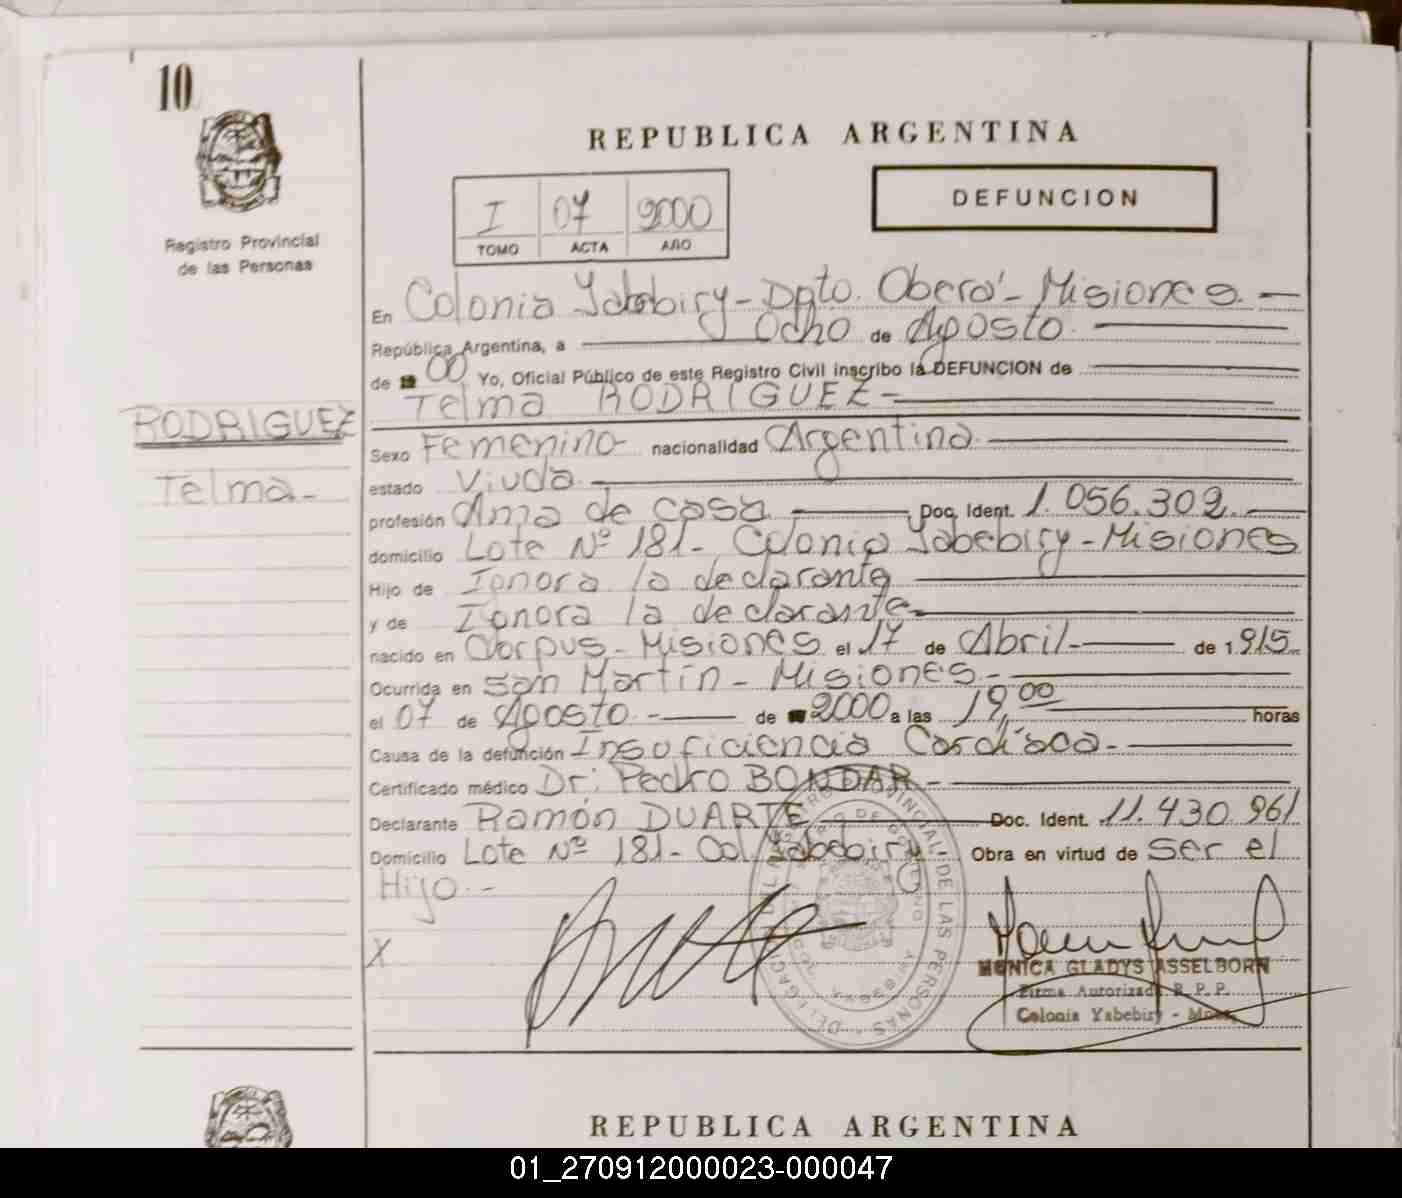 10
REPUBLICA ARGENTINA
I 07 2000
TOMO ACTA AÑO
DEFUNCION
Registro Provincial
de las Personas
En Colonia Yabebiry - Dpto. Oberá - Misiones. -
República Argentina, a Ocho de Agosto.
de 00 Yo, Oficial Público de este Registro Civil inscribo la DEFUNCION de
Telma RODRIGUEZ -
RODRIGUEZ
Telma -
Sexo Femenino nacionalidad Argentina.
estado Viuda.
profesión Ama de casa Doc. Ident. 1.056.302.
domicilio Lote Nº 181 - Colonia Yabebiry - Misiones
Hijo de Ignora la declarante
y de Ignora la declarante.
nacido en Corpus - Misiones el 17 de Abril - de 1.915
Ocurrida en San Martín - Misiones. -
el 07 de Agosto. - de 2000 a las 19,00 horas
Causa de la defunción Insuficiencia Cardíaca. -
Certificado médico Dr: Pedro BONDAR -
Declarante Ramón DUARTE Doc. Ident. 11.430.961
Domicilio Lote Nº 181 - Col. Yabebiry Obra en virtud de ser el
Hijo. -
X
DE LAS PERSONAS
MONICA GLADYS ASSELBORN
Firma Autorizada R. P. P.
Colonia Yabebiry - Mnes.
REPUBLICA ARGENTINA
01_270912000023-000047